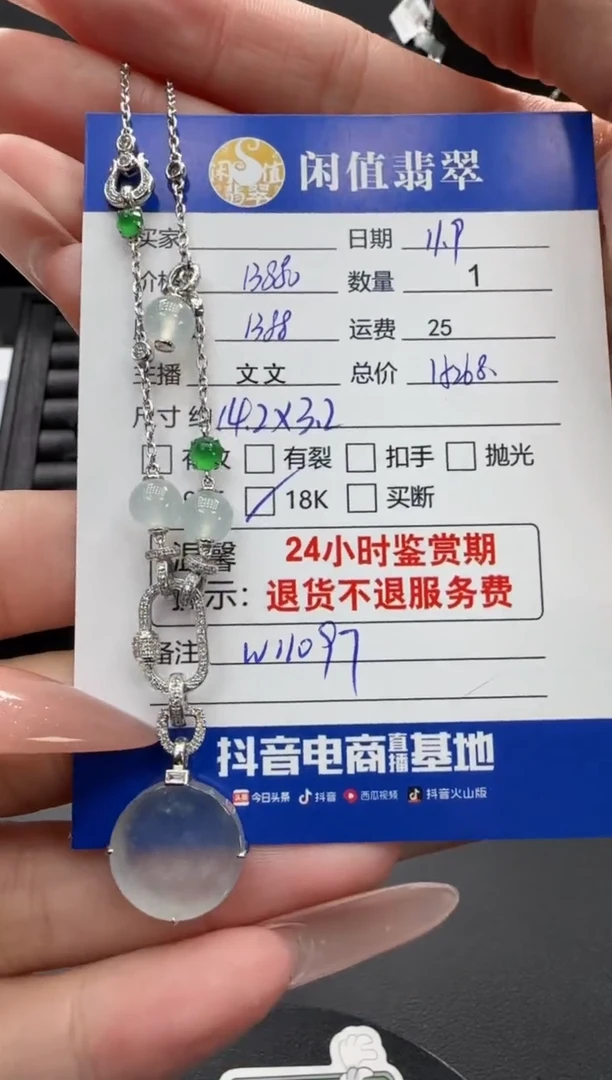 闲值翡翠
买家 日期 11.9
价格 13850 数量 1
1388 运费 25
主播 文文 总价
尺寸 约 14.2X3.2
有纹 有裂 扣手 抛光
18K 买断
温馨 24小时鉴赏期
提示: 退货不退服务费
备注 W11097
抖音电商直播基地
今日头条 抖音 西瓜视频 抖音火山版